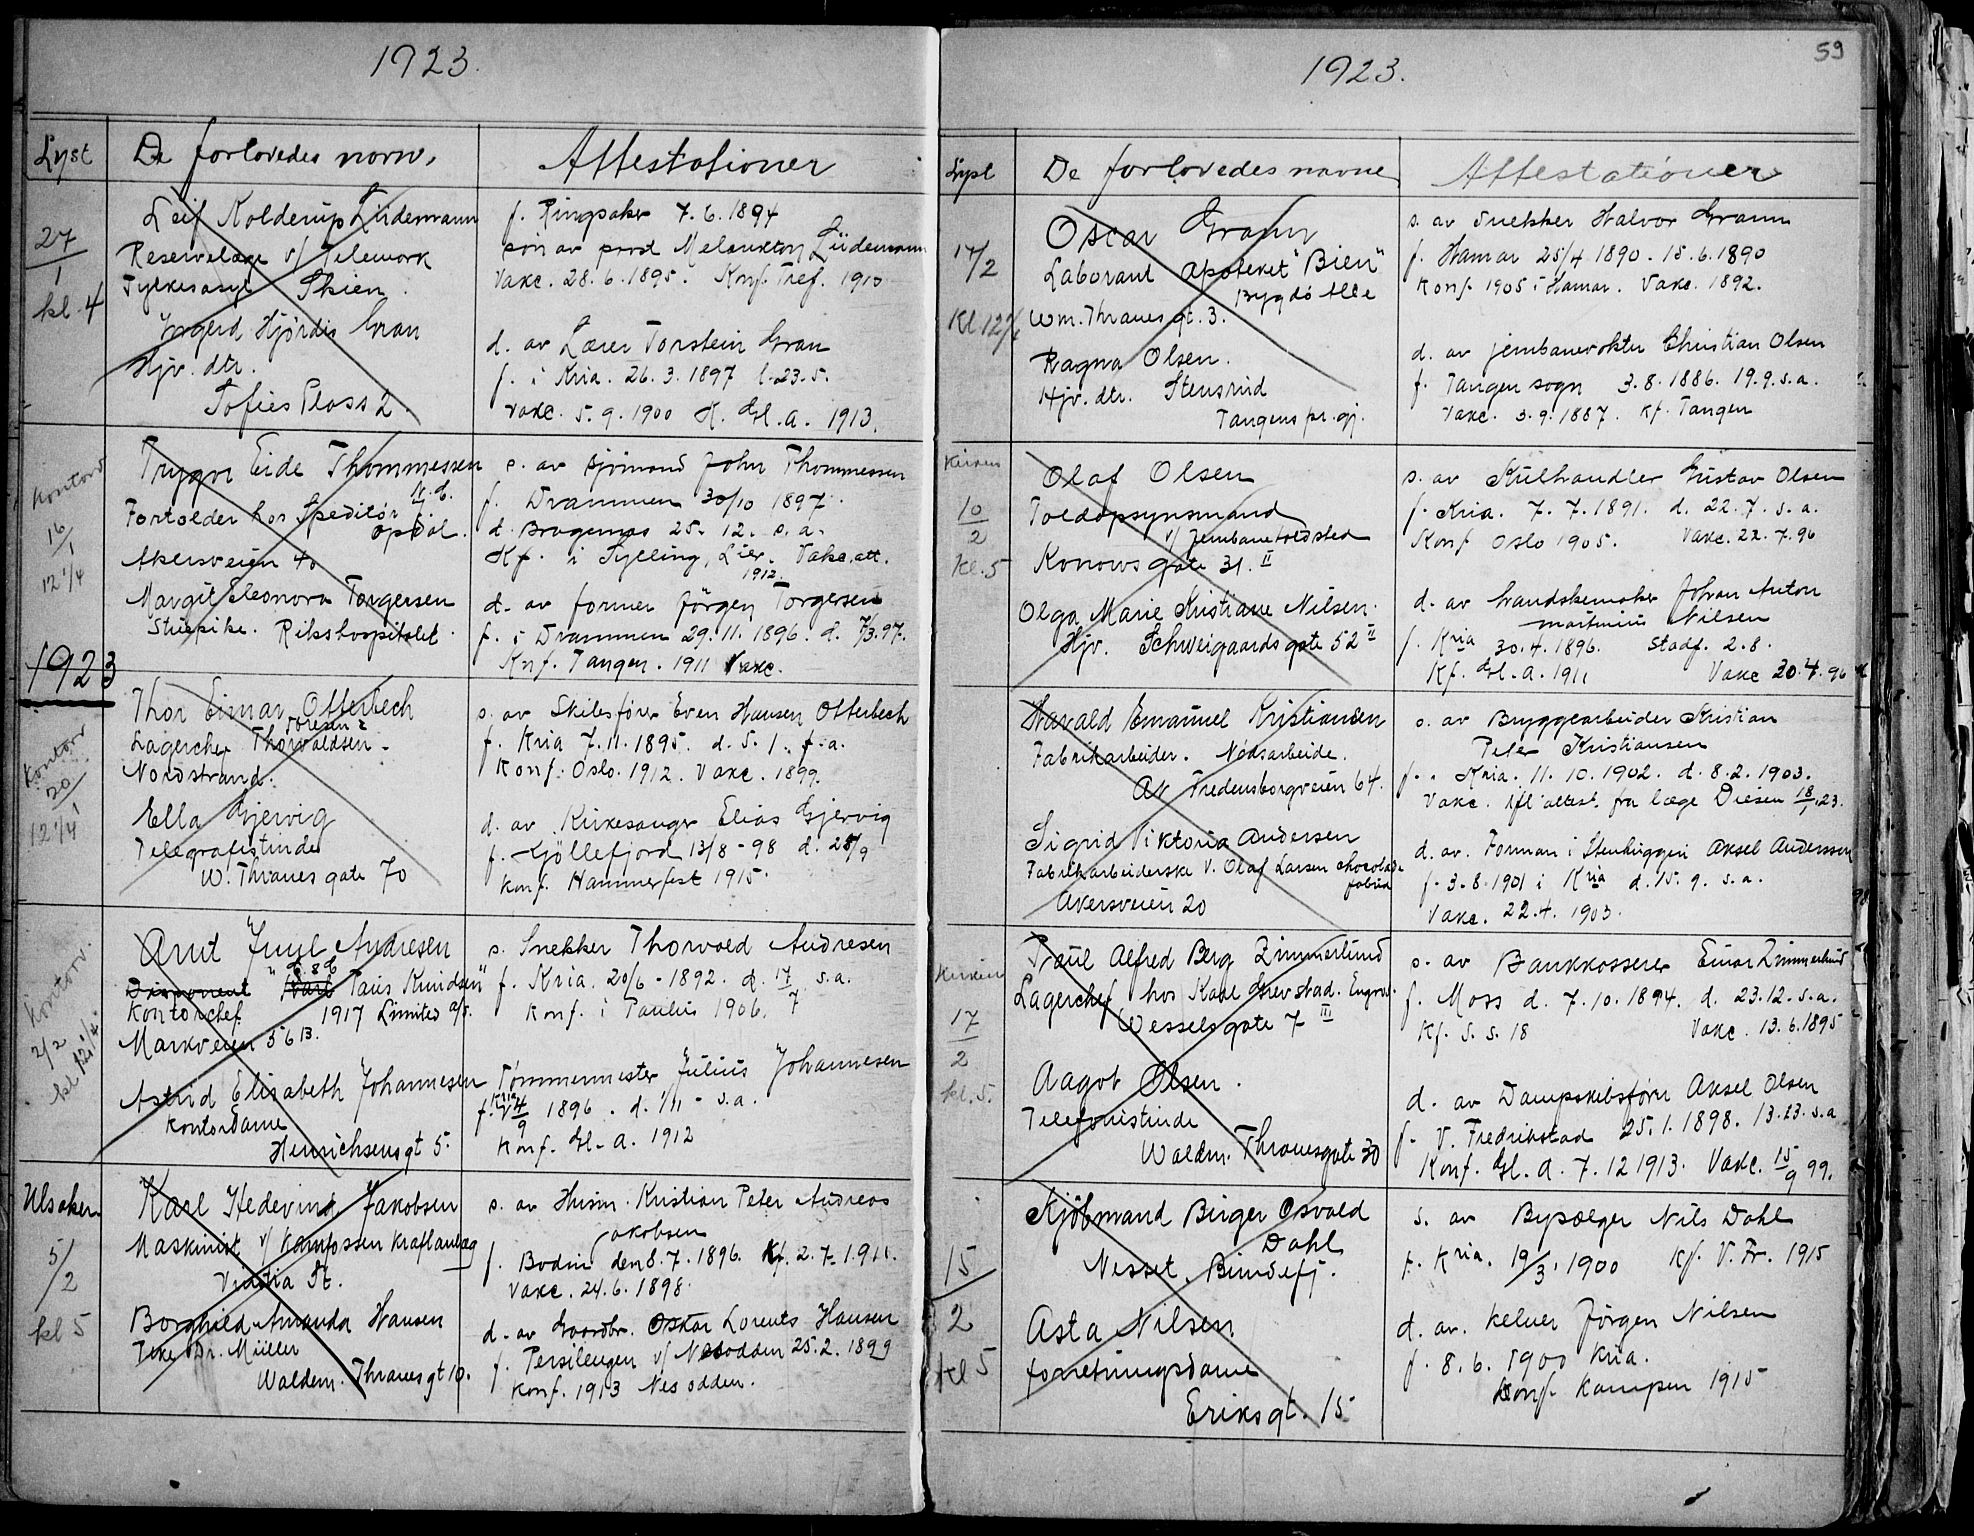 1923.
Lyst
De forlovedes navn.
Attestationer
27/1
kl. 4
Leif Kolderup Lindemann
Reservelæge v/ Telemark
Fylkesasyl Skien.
Ingerd Hjördis Gran
Hjv. dtr.
Sofies Plass 2.
f. Ringsaker 7.6.1894
søn av prost Melankton Lindemann
Vakc. 28.6.1895. Konf. Tref. 1910
d. av Lærer Torstein Gran
f. i Kria. 26.3.1897 23.5.
vakc. 5.9.1900 K. Gl.a. 1913.
Kontor
16/1
12 1/4
Trygve Eide Thommessen
Fortolder hos Speditør
Opdal.
Akersveien 40
Margit Eleonora Torgersen
Stuepike. Rikshospitalet.
s. av sjömand John Thommessen
f. Drammen 30/10 1897.
d. Bragernes 25. 12. s.a.
Kf. i Sylling, Lier. Vakc. att.
1912.
d. av former Jörgen Torgersen
f. i Drammen 29.11.1896. d. 7/3.97.
Knf. Tangen. 1911 Vakc.
1923
Kontor
20/1
12 1/4
Thor Einar Otterbech
Lagerchef Thorvaldsen
Nordstrand.
Ella Gjervig
Telegrafistinde
W. Thranes gate 70
s. av Skibsfører Even Hansen Otterbech
f. Kria 7.11.1895. d. 5.1. f.a.
Konf. Oslo. 1912. Vakc. 1899.
d. av Kirkesanger Elias Gjervig
f. Kjöllefjord 13/8-98 d. 28/9
Konf. Hammerfest 1915.
Kontor.
2/2
kl. 12 1/4.
Arnt Juul Andresen
Disponent Paus Knudsen
Kontorchef 1917 Limited A/S.
Markveien 56 B.
Astrid Elisabeth Johannesen
Kontordame
Henrichsensgt 5.
s. Snekker Thorvald Andresen
f. Kria. 20/6-1892. d. 17/7 s.a.
Konf. i Paulus 1906.
Tømmermester Julius Johannesen
f. Kria 4/9 1896. d. 1/11 - s.a.
Konf. Gl.a. 1912
Ulsaker
5/2
kl 5
Karl Hedevind Jakobsen
Maskinist v/ Kamfossen kraftanlæg
St.
Borghild Amanda Hansen
Pike Dr. Müller
Waldem. Thranesgt 10.
s. av Husm. Kristian Peter Andreas
Jakobsen
f. Bodin den 8.7.1896. Kf. 2.7.1911.
Vakc. 24.6.1898.
d. av Gaardbr. Oskar Lorents Hansen
f. Persilengen v/ Nesodden 25.2.1899
Konf. 1913 Nesodden.
59
1923.
Lyst
De forlovedes navne
Attestationer
17/2
Kl. 12 1/4
Oscar Gramm
Laborant apoteket "Bien"
Bygdö Alle
Wm. Thranes gt. 3.
Ragna Olsen.
Hjv. dtr. Stensrud
Tangens pr. gj.
s. av snekker Halvor Gramm
f. Hamar 25/4 1890 - 15.6.1890
Konf 1905 i Hamar. Vakc. 1892.
d. av jernbanevokter Christian Olsen
f. Tangen sogn 3.8.1886. 19.9.s.a.
Vakc. 3.9.1887. Kf. Tangen
Kirken
10/2
Kl. 5
Olaf Olsen
Toldopsynsmand
v/ Jernbanetoldsted
Konows gate 31. II
Olga Marie Kristiane Nilsen.
Hjv. Schweigaards gate 52 II
s. av Kulhandler Gustav Olsen
f. Kria. 7.7.1891. d. 22.7.s.a.
Konf Oslo 1905. Vakc. 22.7.96
d. av handskemaker Johan Anton
Martinius Nilsen
f. Kria 30.4.1896. Stadf. 2.8.
Kf. Gl.a. 1911 Vakc 30.4.96
Harald Emanuel Kristiansen
Fabrikarbeider. Nødsarbeide.
Av Fredensborgveien 64.
Sigrid Viktoria Andersen
Fabrikarbeiderske v. Olaf Larsen chocolade
fabrik
Akersveien 20
s. av Bryggearbeider Kristian
Peter Kristiansen
f. Kria. 11.10.1902. d. 8.2.1903.
Vakc. ifl. attest. fra læge Diesen 18/1.23.
d. av. Forman i Stenhuggeri Aksel Anderssen
f. 3.8.1901 i Kria d. 15.9. s.a.
Vakc. 22.4. 1903.
Kirken
17/2
kl. 5.
Paul Alfred Berg Zimmerlund
Lagerchef hos Kaare Grevstad. Engros.
Wessels gate 7 III
Aagot Olsen.
Telefonistinde
Waldm. Thranesgate 30
s. av Bankkasserer Einar Zimmerlund
f. Moss d. 7.10.1894. d. 23.12.s.a.
Kf. S.S. 18 Vakc. 13.6.1895
d. av Dampskibsfører Aksel Olsen
f. V. Fredrikstad 25.1.1898. 13.23.s.a
Konf. Gl.a. 7.12 1913. Vakc. 15/9 99.
15/2
kl 5
Kjöbmand Birger Osvald
Dahl
Nesset. Bundefj.
Asta Nilsen
forretningsdame
Eriksgt. 15
s. av Bysælger Nils Dahl
f. Kria. 19/3. 1900 Kf. V. Fr. 1915
d. av. Kelner Jørgen Nilsen
f. 8.6. 1900 Kria.
Konf. Kampen 1915